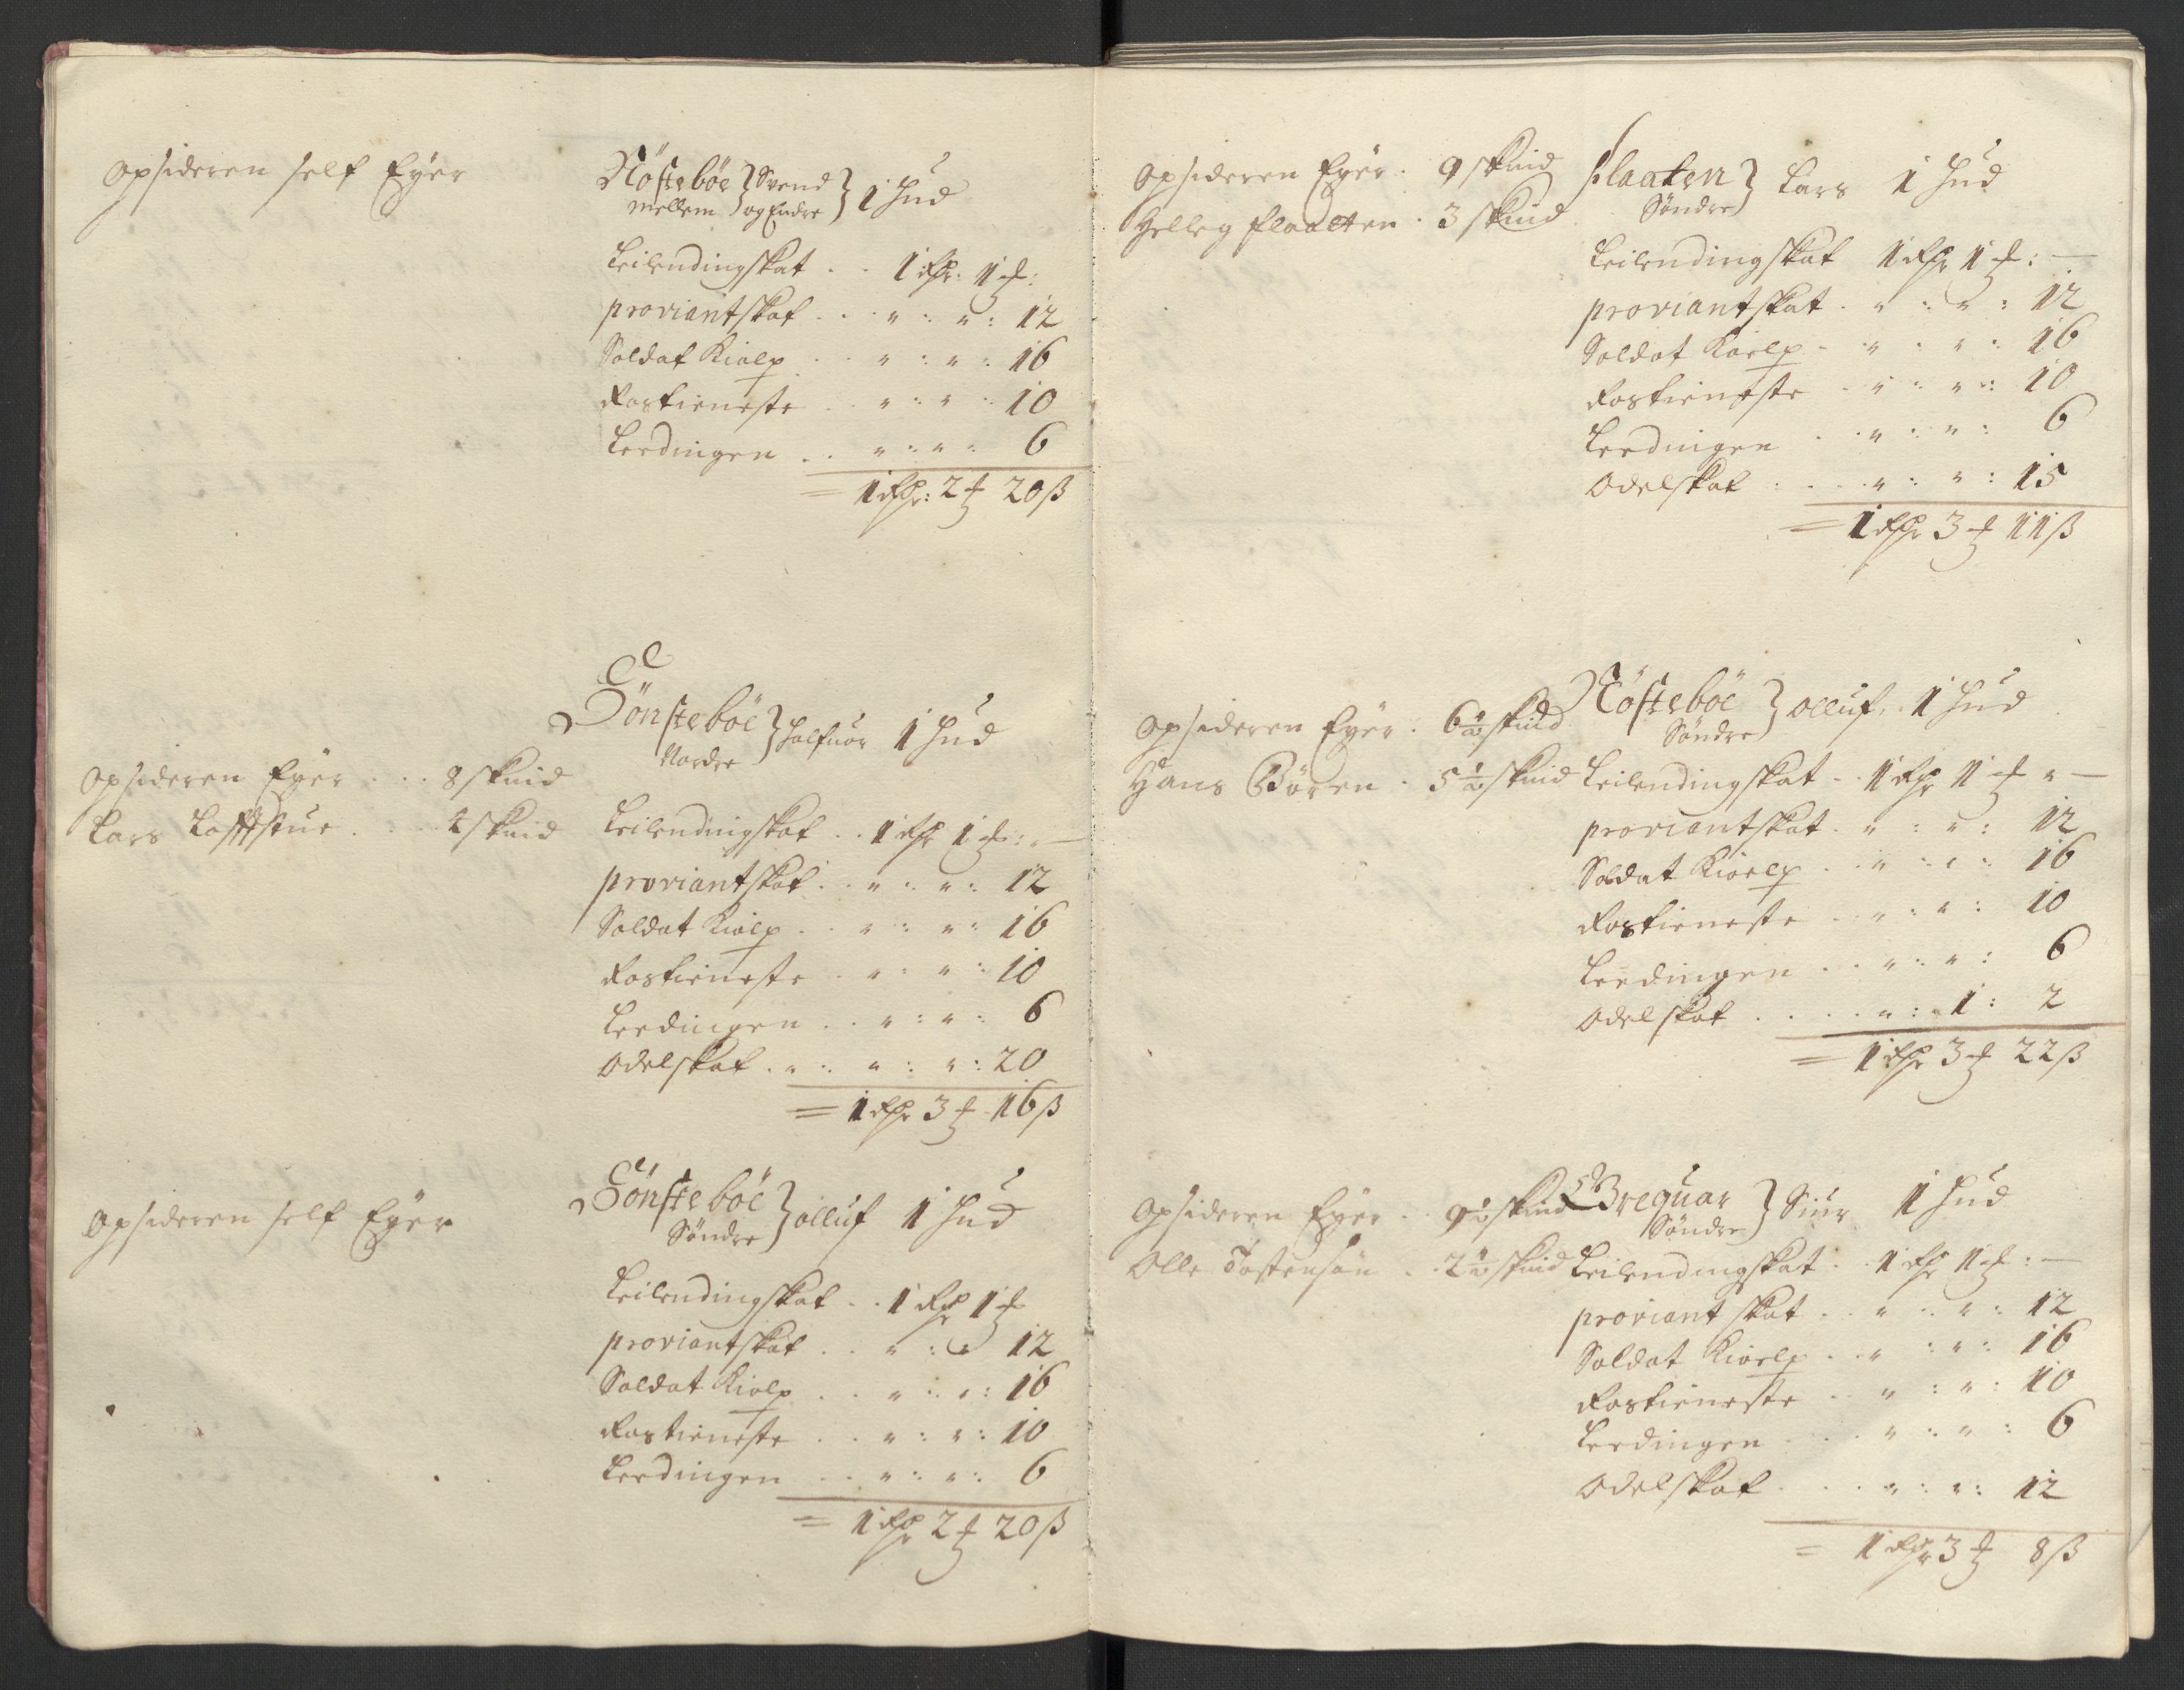 Opsideren self Eyer
Nöstebøe mellem } Svend og Endre } 1 Hud
Leilendingskat . . 1 Rdr: 1 ort:
proviantskat . . " : " : 12
Soldat Kiolp . . " : " : 16
Rostieneste . . " : " : 10
Leedingen . . " : " : 6
= 1 Rdr: 2 ort 20 ß
Tönstebøe Nordre } Halfuor 1 Hud
Opsideren Eyer . . . 8 skind
Lars Lofftstue . . . 4 skind
Leilendingskat . . 1 Rdr 1 ort : " —
proviantskat . . " : " : 12
Soldat Kiolp . . " : " : 16
Rostieneste . " : " : 10
Leedingen . . " : " : 6
Odelskat . " : " : " : 20
= 1 Rdr 3 ort 16 ß
Opsideren self Eyer
Tönstebøe Söndre } Olluf 1 Hud
Leilendingskat . . 1 Rdr 1 ort
proviantskat . . " : " 12
Soldat Kiolp . . " : " : 16
Rostieneste . . " : " : 10
Leedingen . . " : " : 6
= 1 Rdr 2 ort 20 ß
Opsideren Eyer . 9 skind
Helleg plaatten . 3 skind
plaaten Söndre } Lars 1 Hud
Leilendingskat 1 Rdr 1 ort : —
proviantskat . " : " : 12
Soldat Kioelp - " : " : 16
Rostieneste . " : " : 10
Leedingen . . " : " : 6
Odelskat : . . " : " : 15
= 1 Rdr 3 ort 11 ß
Opsideren Eyer : 6 1/2 skind
Hans Bören . 5 1/2 skind
Nöstebøe Söndre } Olluf . 1 Hud
Leilendingskat . . 1 Rdr 1 ort " —
proviantskat . " : " : 12
Soldat Kioelp . . " : " : 16
Rostieneste . . " : " : 10
Leedingen . . " : " : 6
Odelskat . . . . " : 1 : 2
= 1 Rdr 3 ort 22 ß
Opsideren Eyer . . 9 1/2 skind
Olle Tostensön . . 2 1/2 skind
Breguar Söndre } Siur 1 Hud
Leilendingskat . . 1 Rdr 1 ort : —
proviant skat . . " : " : 12
Soldat Kioelp . . " : " : 16
Rostieneste . . " : " : 10
Leedingen . . . " : " : 6
Odelskat . . . " : " : 12
= 1 Rdr 3 ort 8 ß